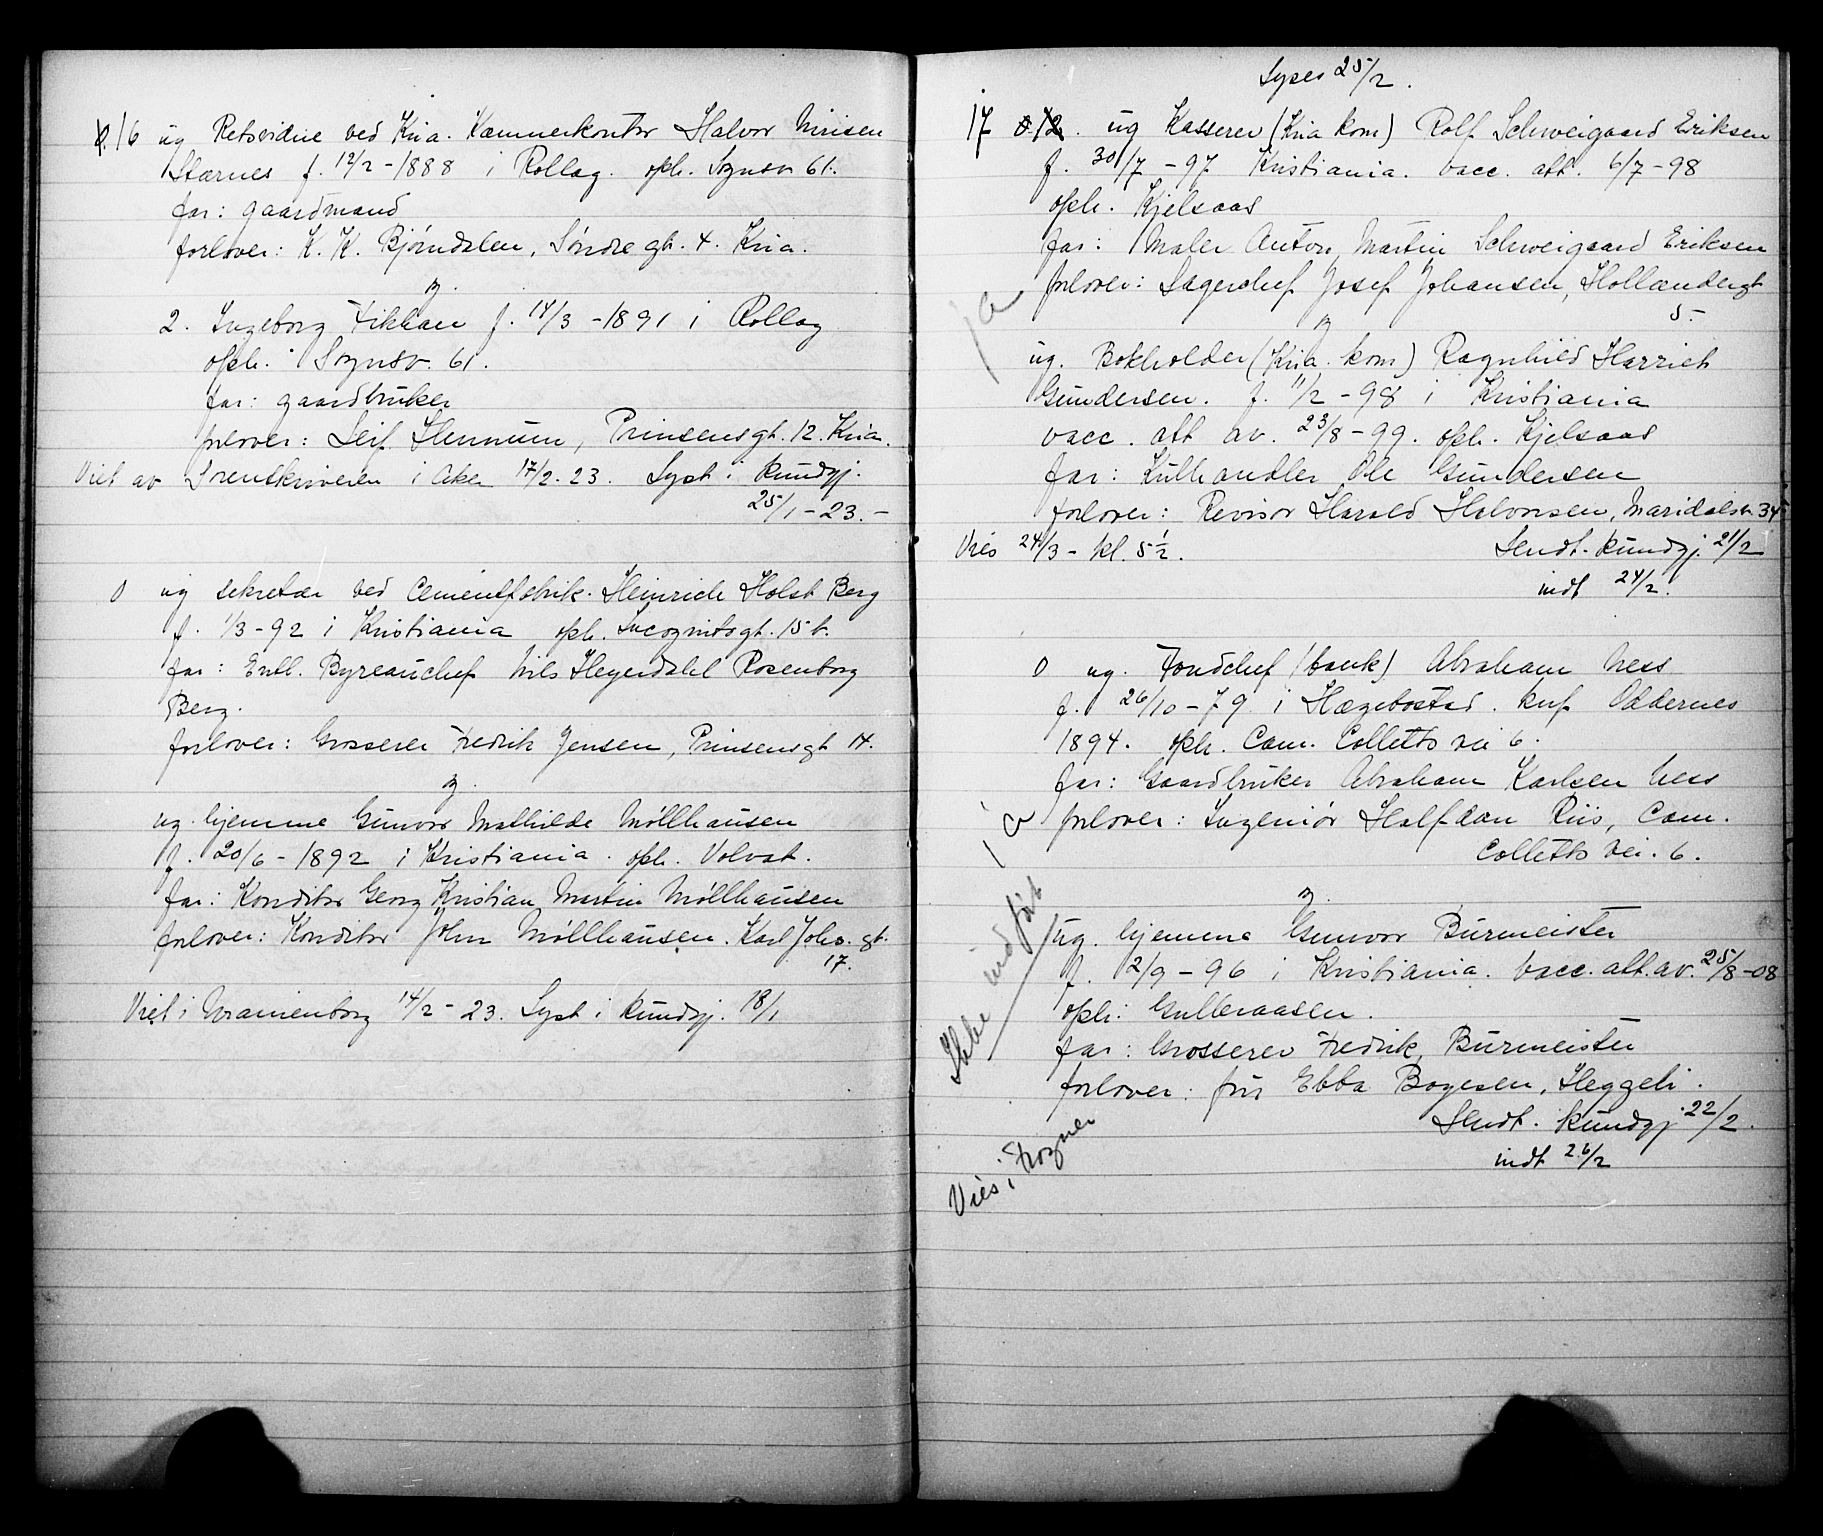 16 ug Retsvidne ved Kria. Kæmnerkontor Halvor Nirisen
Stærnes f. 12/2 - 1888 i Rollag. oph. Sognsv. 61.
far: gaardmand
forlover: K. K. Bjørndalen, Søndre gt. 4. Kria.
og
2. Ingeborg Fikkan f. 14/3 - 1891 i Rollag
oph. Sognsv. 61.
far: gaardbruker
forlover: Leif Hennum, Prinsensgt. 12. Kria.
Viet av Sorenskriveren i Aker 17/2. 23. Lyst i kundgj.
25/1 - 23. -
0 ug sekretær ved Cementfabrik. Heinrich Holst Berg
f. 1/3 - 92 i Kristiania oph. Incognitogt. 15 b.
far: Entl. Byreauchef Nils Heyerdahl Rosenborg
Berg.
forlover: Grosserer Fredrik Jensen, Prinsensgt 14.
og.
ug. hjemme Gunvor Mathilde Møllhausen
f. 20/6 - 1892 i Kristiania. oph. Volvat.
far: Konditor Georg Kristian Martin Møllhausen
forlover: Konditor John Møllhausen. Karl Johs. gt.
17.
Viet i Uranienborg 14/2 - 23. Lyst i kundgj. 18/1
Lyses 25/2.
17 ug Kasserer (Kria kom) Rolf Schweigaard Eriksen
f. 30/7 - 97 Kristiania. vacc. att. 6/7 - 98
oph. Kjelsaas
far: Maler Anton Martin Schweigaard Eriksen
forlover: Lagerchef Josef Johansen, Hollendergt
5.
ja
og
ug. Bokholder (Kria. kom) Ragnhild Harriet
Gundersen. f. 11/2 - 98 i Kristiania
vacc. att av. 23/8 - 99. oph. Kjelsaas
far: Kulhandler Ole Gundersen
forlover: Revisor Harald Halvorsen, Maridalsv. 34
Vies 24/3 - kl. 5 1/2. Sendt. kundgj. 21/2
indt 24/2.
0 ug. Fondchef (bank) Abraham Ness
f. 26/10 - 79 i Hægebostad. knf Oddernes
1894. oph. Cam. Colletts vei 6.
far: Gaardbruker Abraham Karlsen Ness
forlover: Ingeniør Halfdan Riis, Cam.
Colletts vei. 6.
ja
og
ug. hjemme Gunvor Burmeister
f. 2/9 - 96 i Kristiania. vacc. att. av. 25/8 - 08
oph: Gulleraasen.
far: Grosserer Fredrik Burmeister
forlover: fru Ebba Bogesen, Heggeli.
Sendt. kundgj. 22/2.
indt 26/2
Ikke indført
Vies i Frogner